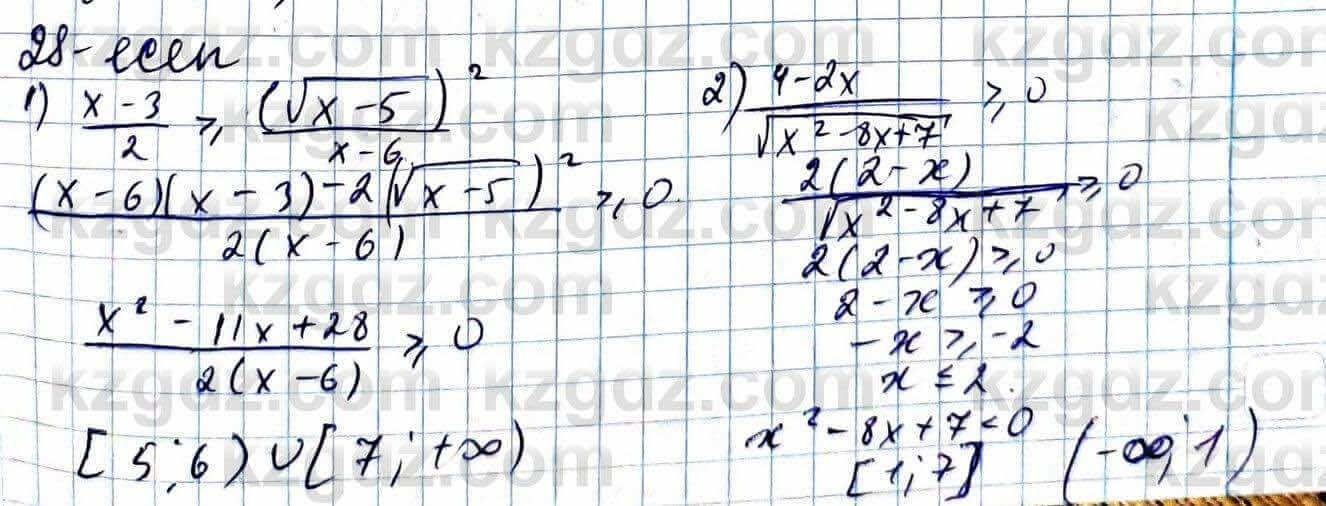 28-есен
1) (x-3)/2 ≥ (√(x-5))²/(x-6)
((x-6)(x-3)-2(√(x-5))²)/(2(x-6)) ≥ 0.
(x²-11x+28)/(2(x-6)) ≥ 0
[5;6)∪[7;+∞)
2) (4-2x)/√(x²-8x+7) ≥ 0
2(2-x)/√(x²-8x+7) ≥ 0
2(2-x) ≥ 0
2-x ≥ 0
-x ≥ -2
x ≤ 2.
x²-8x+7<0
[1;7] (-∞;1)
kzgdz.com